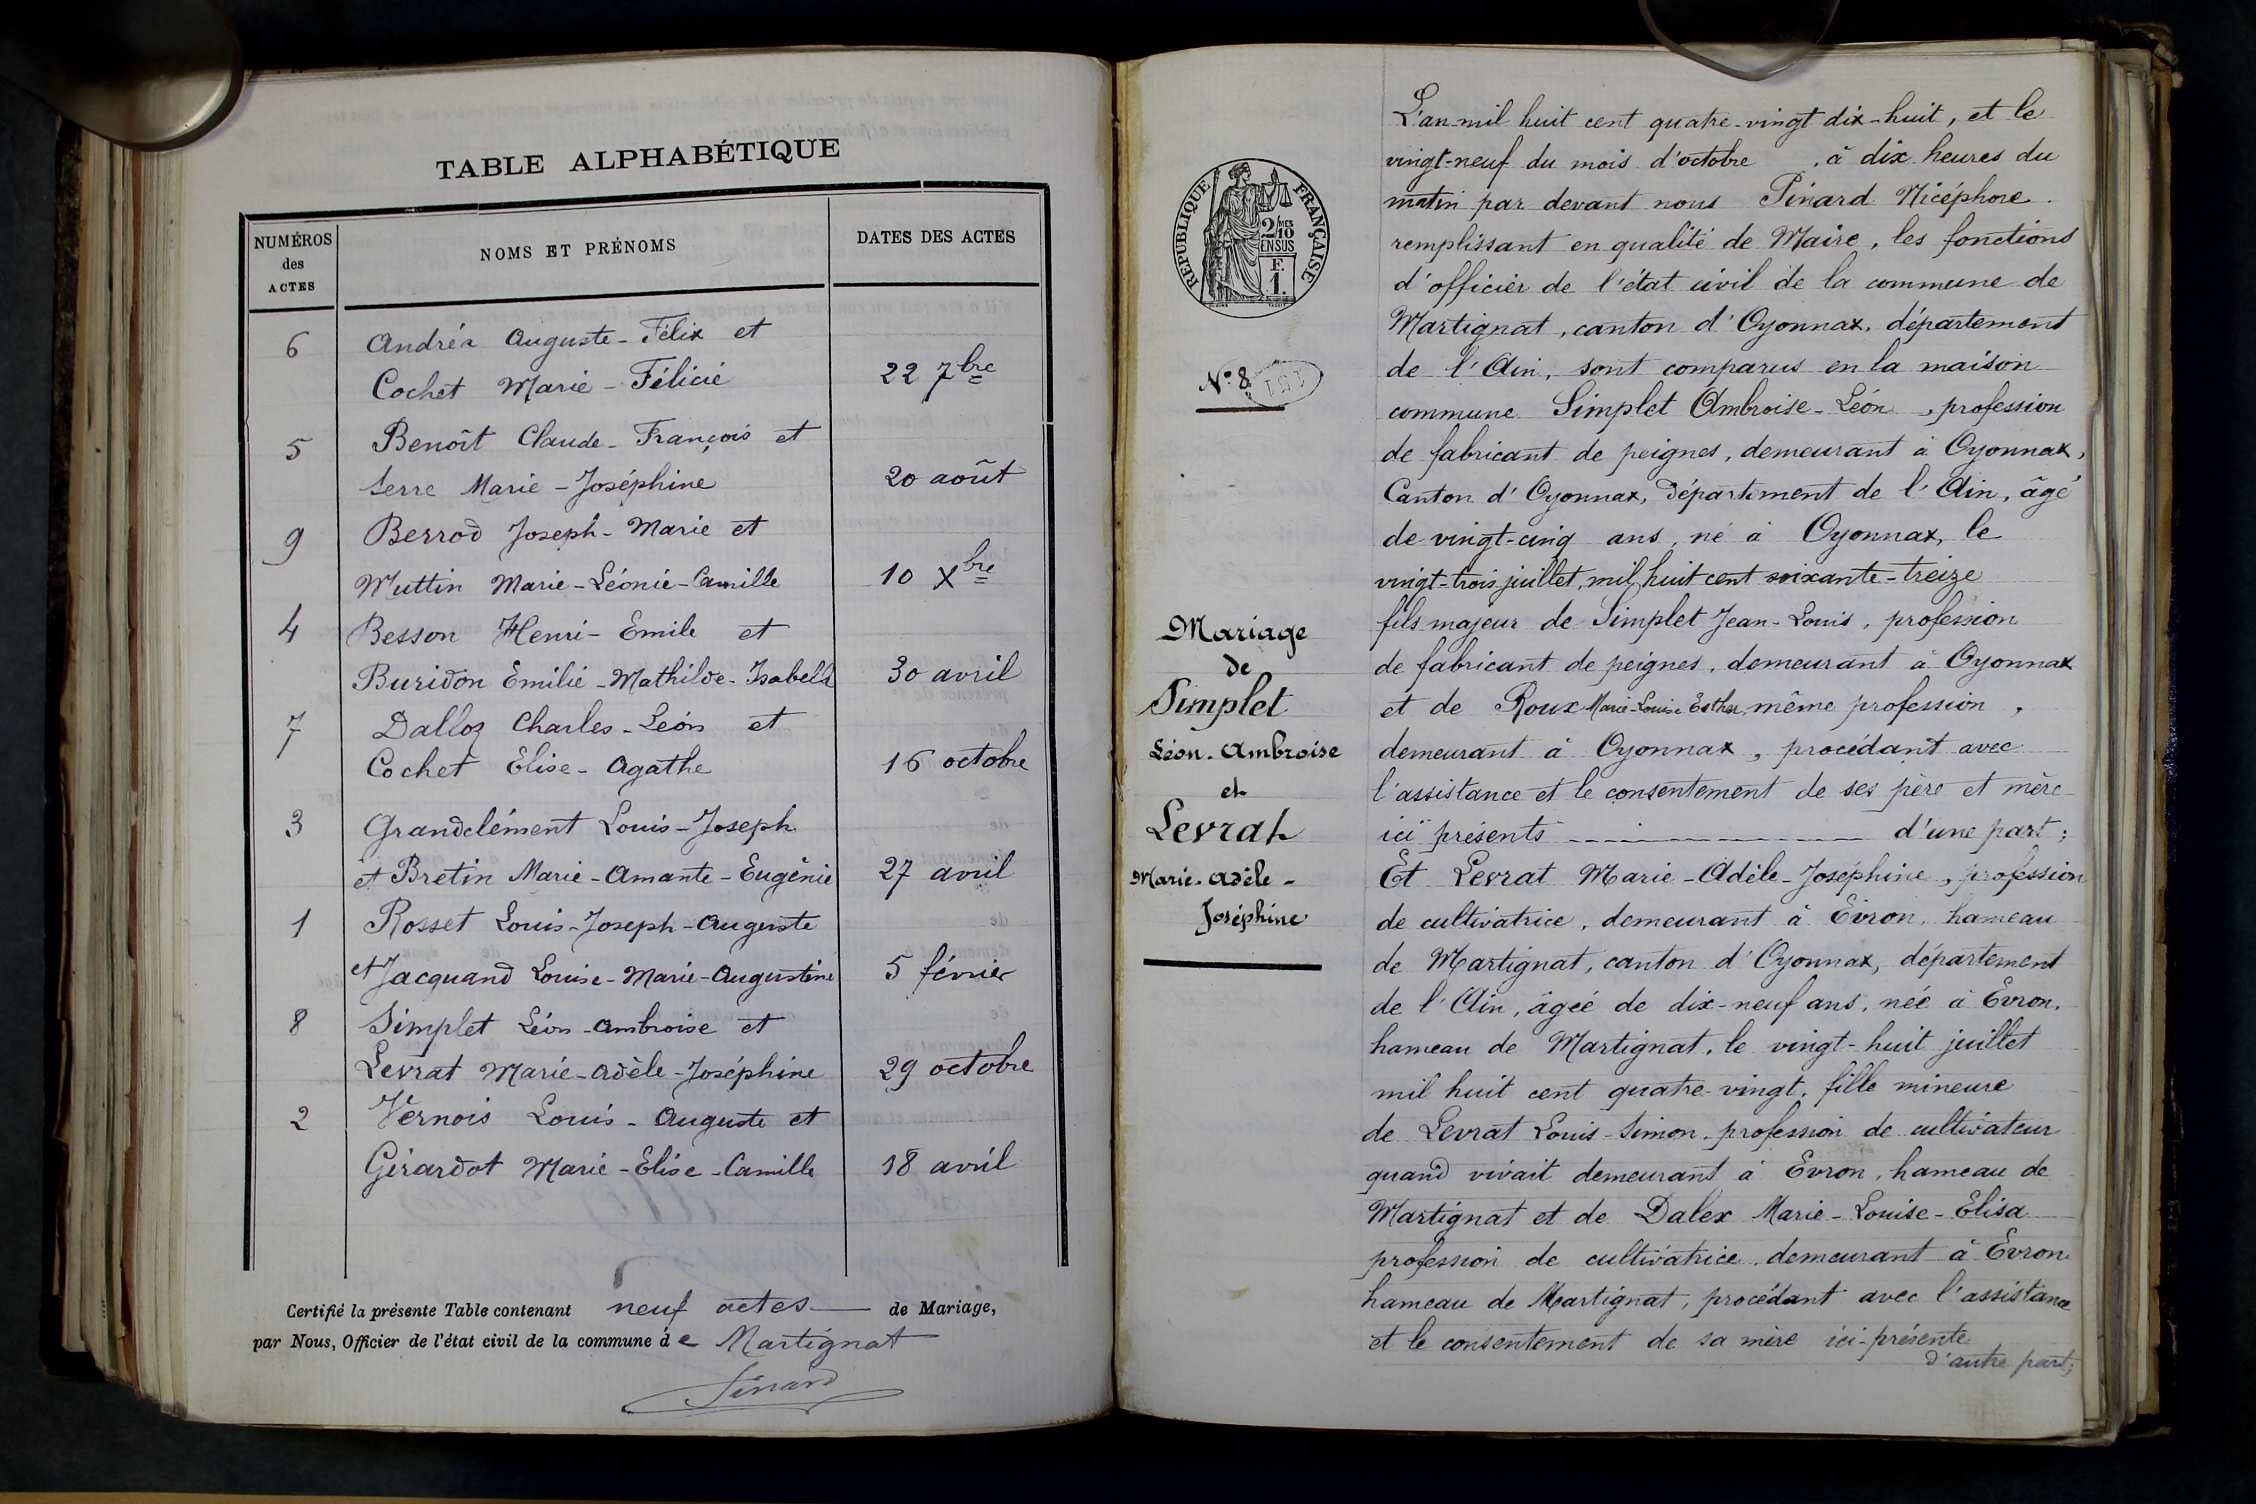 TABLE ALPHABÉTIQUE
NUMÉROS
des
ACTES
NOMS ET PRÉNOMS
DATES DES ACTES
6 Andréa Auguste-Félix et
Cochet Marie-Félicie 22 7bre
5 Benoît Claude-François et
Serre Marie-Joséphine 20 août
9 Berrod Joseph-Marie et
Muttin Marie-Léonie-Camille 10 Xbre
4 Besson Henri-Emile et
Buridon Emilie-Mathilde-Isabelle 30 avril
7 Dalloz Charles-Léon et
Cochet Elise-Agathe 16 octobre
3 Grandclément Louis-Joseph
et Bretin Marie-Amante-Eugénie 27 avril
1 Rosset Louis-Joseph-Auguste
et Jacquand Louise-Marie-Augustine 5 février
8 Simplet Léon-Ambroise et
Levrat Marie-Adèle-Joséphine 29 octobre
2 Vernois Louis-Auguste et
Girardot Marie-Elise-Camille 18 avril
Certifié la présente Table contenant neuf actes de Mariage,
par Nous, Officier de l'état civil de la commune de Martignat
Pinard
RÉPUBLIQUE FRANÇAISE
2/10mes
EN SUS
F.
1.
N° 8
Mariage
de
Simplet
Léon-Ambroise
et
Levrat
Marie-Adèle-
Joséphine
L'an mil huit cent quatre-vingt dix-huit, et le
vingt-neuf du mois d'octobre, à dix heures du
matin par devant nous Pinard Nicéphore
remplissant en qualité de Maire, les fonctions
d'officier de l'état civil de la commune de
Martignat, canton d'Oyonnax, département
de l'Ain, sont comparus en la maison
commune Simplet Ambroise-Léon, profession
de fabricant de peignes, demeurant à Oyonnax,
Canton d'Oyonnax, Département de l'Ain, âgé
de vingt-cinq ans, né à Oyonnax, le
vingt-trois juillet, mil huit cent soixante-treize
fils majeur de Simplet Jean-Louis, profession
de fabricant de peignes, demeurant à Oyonnax
et de Roux Marie-Louise Esther, même profession,
demeurant à Oyonnax, procédant avec
l'assistance et le consentement de ses père et mère
ici présents d'une part;
Et Levrat Marie-Adèle-Joséphine, profession
de cultivatrice, demeurant à Evron, hameau
de Martignat, canton d'Oyonnax, département
de l'Ain, âgée de dix-neuf ans, née à Evron,
hameau de Martignat, le vingt-huit juillet
mil huit cent quatre-vingt, fille mineure
de Levrat Louis-Simon, profession de cultivateur
quand vivait demeurant à Evron, hameau de
Martignat et de Dalex Marie-Louise-Elisa
profession de cultivatrice, demeurant à Evron
hameau de Martignat, procédant avec l'assistance
et le consentement de sa mère ici-présente
d'autre part;